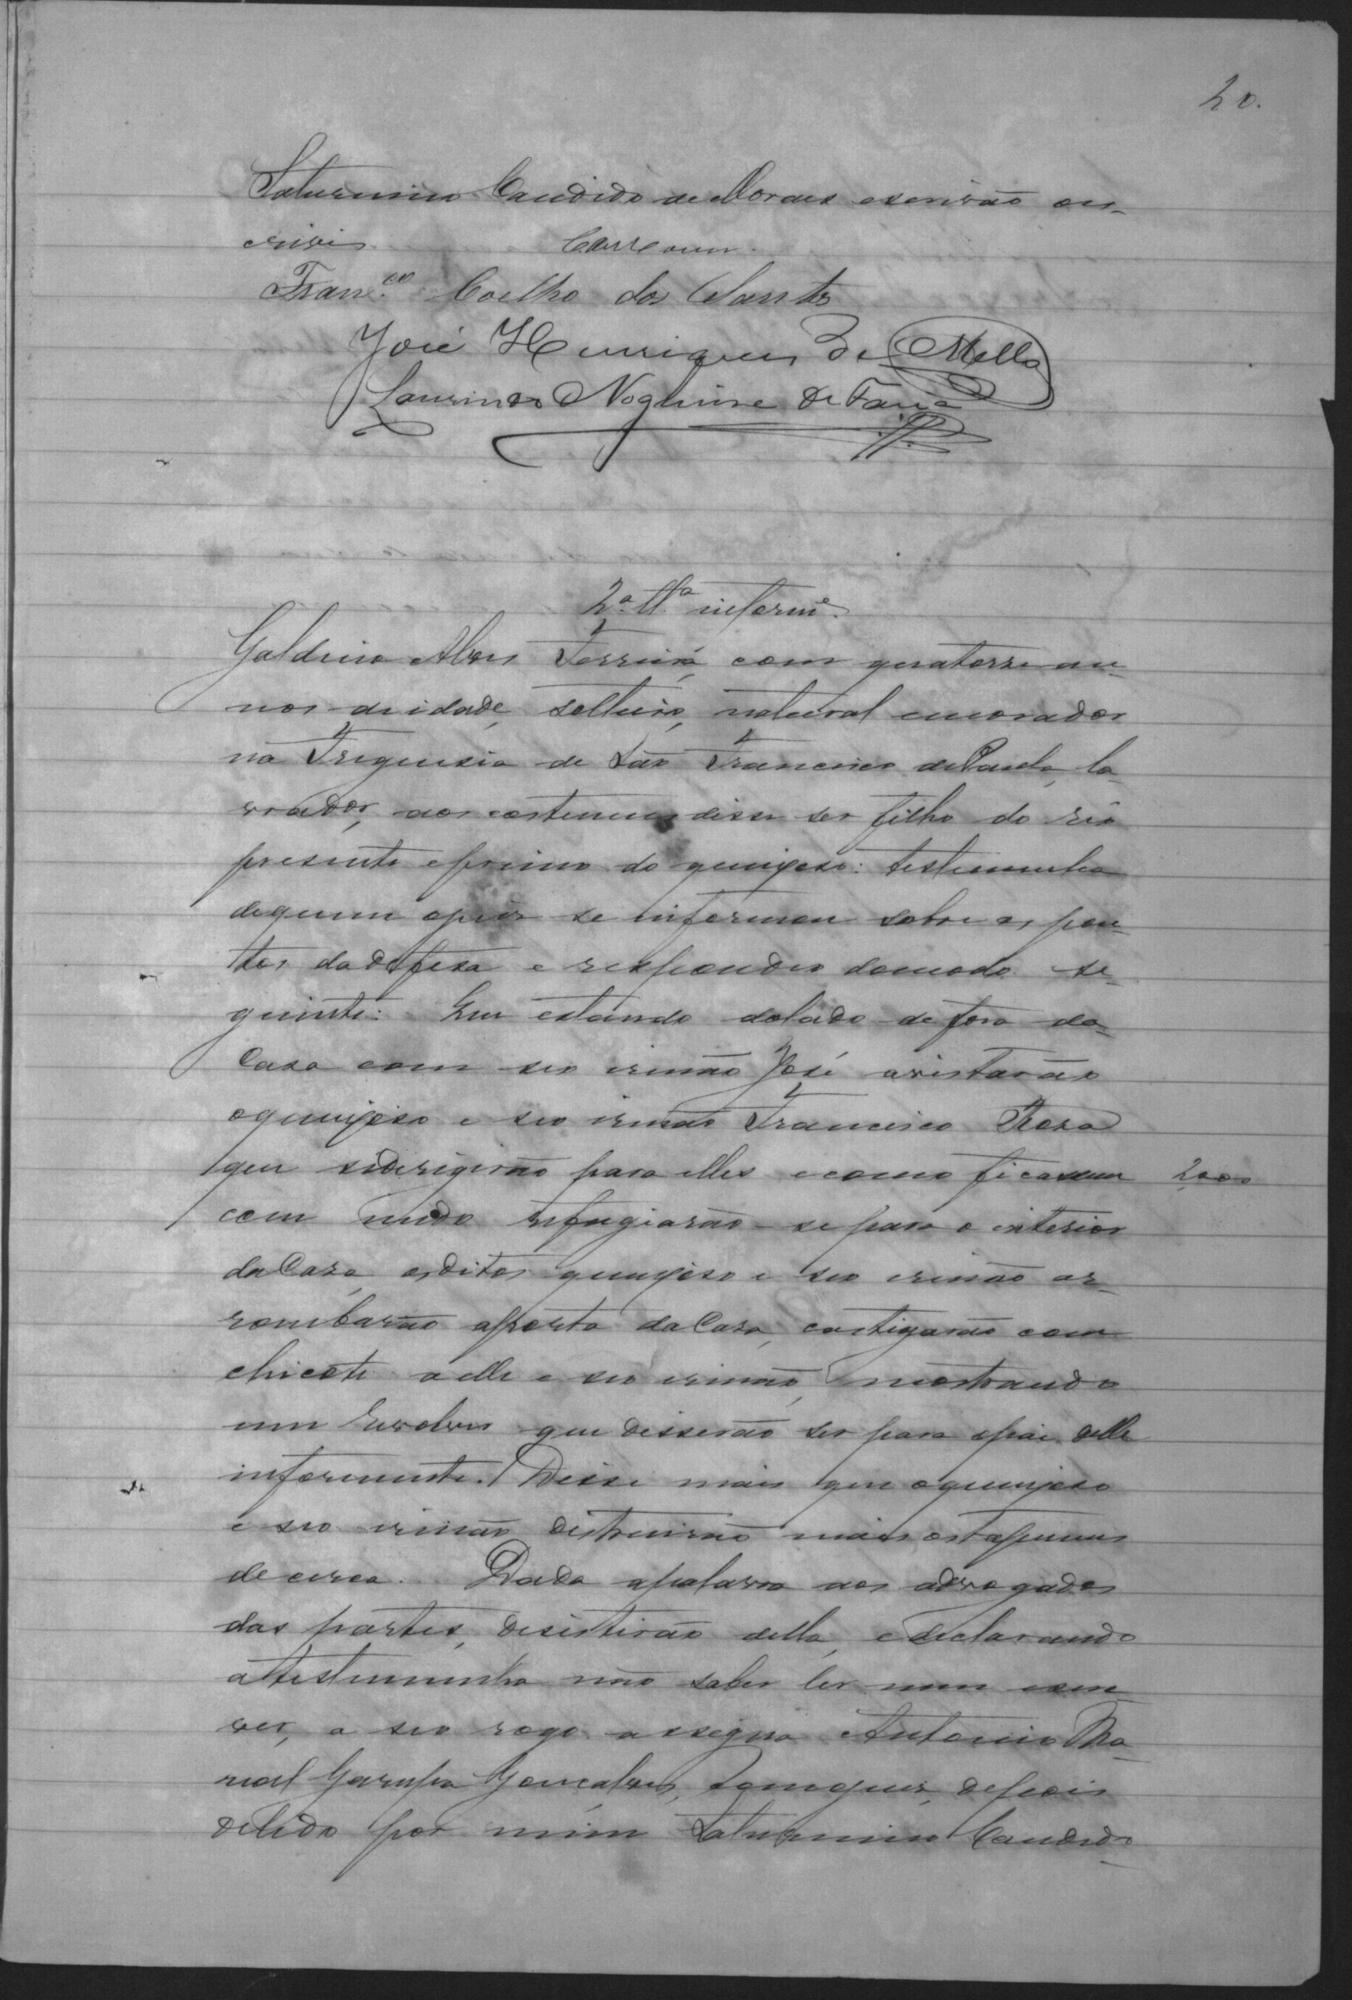 20.
Saturnino Candido de Moraes escrivão es-
crivi
Fran.co Coelho dos Santos
José Henriques de Mello
Laurindo Noghuira de Faria
2.a tt.a inform.e
Galdino Alves Ferreira, com quatorze an-
nos de idade, solteiro, natural e morador
na Freguesia de São Francisco de Paula, la-
vrador, aos costumes disse ser filho do réo
presente e primo do queixoso: testemunha
de quem o juiz se informou sobre os pon-
tos da defesa e respondeu do modo se-
guinte: Que estando do lado de fora da
Casa com seo irmão José avistarão
o queixoso e seo irmão Francisco Rosa
que se dirigirão para elles e como ficassem
com medo refugiarão-se para o interior
da Casa, os ditos queixoso e seo irmão ar-
rombarão a porta da Casa, castigarão com
chicote a elle e seo irmão, mostrando
um revolver que disserão ser para o pai delle
informante. Disse mais que o queixoso
e seo irmão destruirão mais os tapumes
de cerca. Dada a palavra aos advogados
das partes, desistirão della, e declarando
a testemunha não saber ler nem escre
ver, a seo rogo assigna Antonio Ma-
noel Garupa Gonçalves, com o juiz, depois
de lido por mim Saturnino Candido
2000